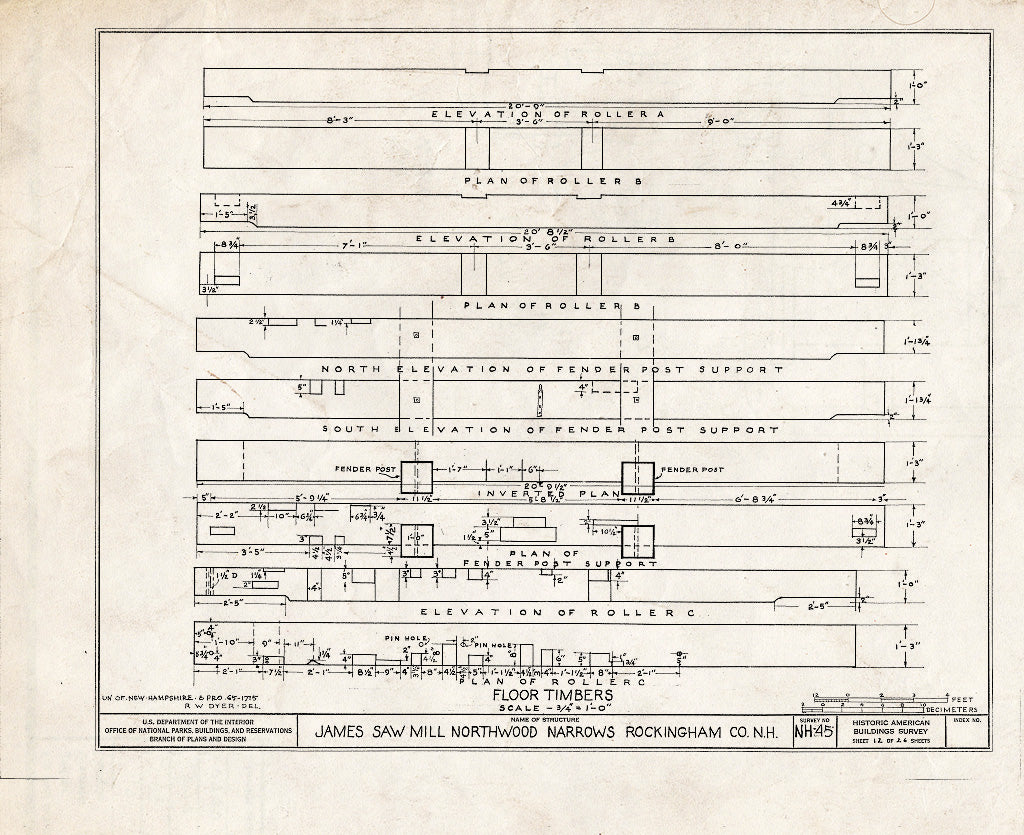 1'-0"
2"
20'-9"
ELEVATION OF ROLLER A
8'-3" 3'-6" 9'-0"
1'-3"
PLAN OF ROLLER B
1'-5" 3 1/2 4 3/4" 1'-0"
20' 8 1/2"
ELEVATION OF ROLLER B
8 3/4 7'-1" 3'-6" 8'-0" 8 3/4 3"
3 1/2" 1'-3"
PLAN OF ROLLER B
2 1/2" 1 1/4" 1'-1 3/4"
NORTH ELEVATION OF FENDER POST SUPPORT
5" 4" 1'-1 3/4"
1'-5" 2"
SOUTH ELEVATION OF FENDER POST SUPPORT
FENDER POST 1'-7" 1'-1" 6" FENDER POST 1'-3"
20" 9 1/2"
INVERTED PLAN
5" 5'-9 1/4" 11 1/2" 5'-8 1/2" 11 1/2" 6'-8 3/4" 3"
2 1/2
2'-2" 10" 6 3/4" 6 3/4 3/4 3 1/2" 8 3/4" 1'-3"
1 1/2 5" 10 1/2" 3 1/2"
3'-5" 3"
PLAN OF
FENDER POST SUPPORT
1 1/2 D 2" 4" 5" 4" 2" 4" 1'-0"
2'-5" 2'-5" 2"
ELEVATION OF ROLLER C
PIN HOLE 2"
PIN HOLE
1'-10" 9" 11" 1'-3"
2'-1" 7 1/2 2'-1" 8 1/2 9" 4" 8" 4 1/2 5" 1'-1 1/2" 4 1/2" 4" 1'-1 1/2" 8" 2'-1"
PLAN OF ROLLER C
FLOOR TIMBERS
SCALE - 3/4" = 1'-0"
UN OF. NEW-HAMPSHIRE. & PRO. 65-1715
R W DYER-DEL.
12 0 2 4 FEET
DECIMETERS
U.S. DEPARTMENT OF THE INTERIOR
OFFICE OF NATIONAL PARKS, BUILDINGS, AND RESERVATIONS
BRANCH OF PLANS AND DESIGN
NAME OF STRUCTURE
JAMES SAW MILL NORTHWOOD NARROWS ROCKINGHAM CO. N.H.
SURVEY NO
NH-45
HISTORIC AMERICAN
BUILDINGS SURVEY
SHEET 12 OF 26 SHEETS
INDEX NO.